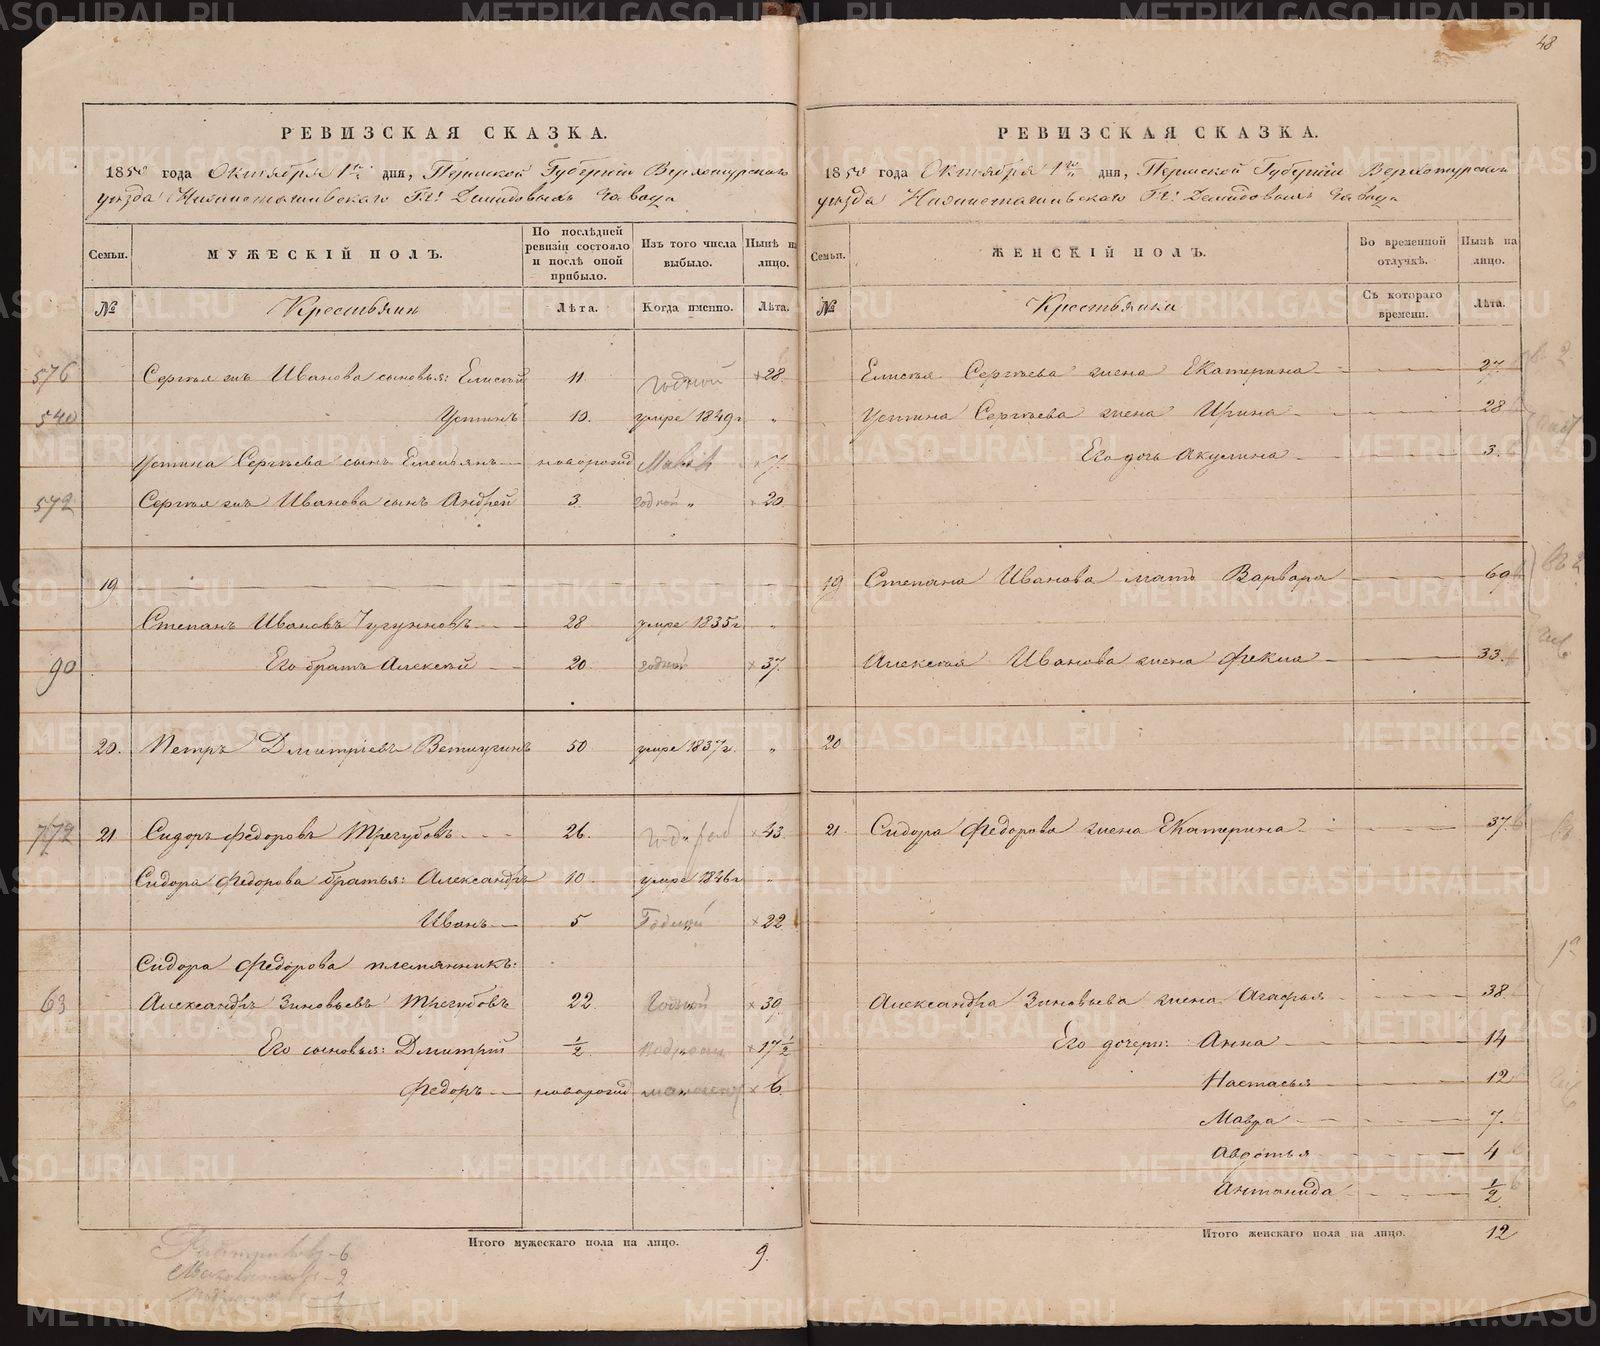 48
РЕВИЗСКАЯ СКАЗКА.
1850 года Октября 1го дня, Пермской Губерніи Верхотурскаго
уезда Нижнетагильскаго Гг: Демидовыхъ Завода
Семьи.
МУЖЕСКІЙ ПОЛЪ.
По послѣдней ревизіи состояло и послѣ оной прибыло.
Изъ того числа выбыло.
Нынѣ на лицо.
№
Крестьянъ
Лѣта.
Когда именно.
Лѣта.
576 Сергея же Иванова сыновья: Елисей 11. годной ×28
540 Устинъ 10. умре 1849г. „
Устина Сергѣева сынъ Емельянъ новорожд ×7.
572 Сергея же Иванова сынъ Андрей 3. годной „ 20
19
Степанъ Ивановъ Чугуновъ 28 умре 1835г. „
90 Его братъ Алексѣй 20. годной ×37.
20. Петръ Дмитріевъ Ветлугинъ 50 умре 1837г. „
772 21 Сидоръ Федоровъ Трегубовъ 26. ×43.
Сидора Федорова братья: Александръ 10. умре 1846г. „
Иванъ 5 Годный ×22.
Сидора Федорова племянникъ:
63 Александръ Зиновьевъ Трегубовъ 22. Годной ×39.
Его сыновья: Дмитрій ½. ×17½
Федоръ новорожд ×6.
Итого мужескаго пола на лицо.
9.
6
2
1
РЕВИЗСКАЯ СКАЗКА.
1850 года Октября 1го дня, Пермской Губерніи Верхотурскаго
уезда Нижнетагильскаго Гг: Демидовыхъ Завода
Семьи.
ЖЕНСКІЙ ПОЛЪ.
Во временной отлучкѣ.
Нынѣ на лицо.
№
Крестьянки
Съ котораго времени.
Лѣта.
Елисея Сергѣева жена Екатерина 27.
Устина Сергѣева жена Ирина 28
Его дочь Акулина 3.
19 Степана Иванова мать Варвара 60
Алексея Иванова жена Фекла 33.
20
21. Сидора Федорова жена Екатерина 37.
Александра Зиновьева жена Агафья 38.
Его дочери: Анна 14
Настасья 12
Мавра 7.
Авдотья 4
Антонида ½
Итого женскаго пола на лицо.
12
METRIKI.GASO-URAL.RU